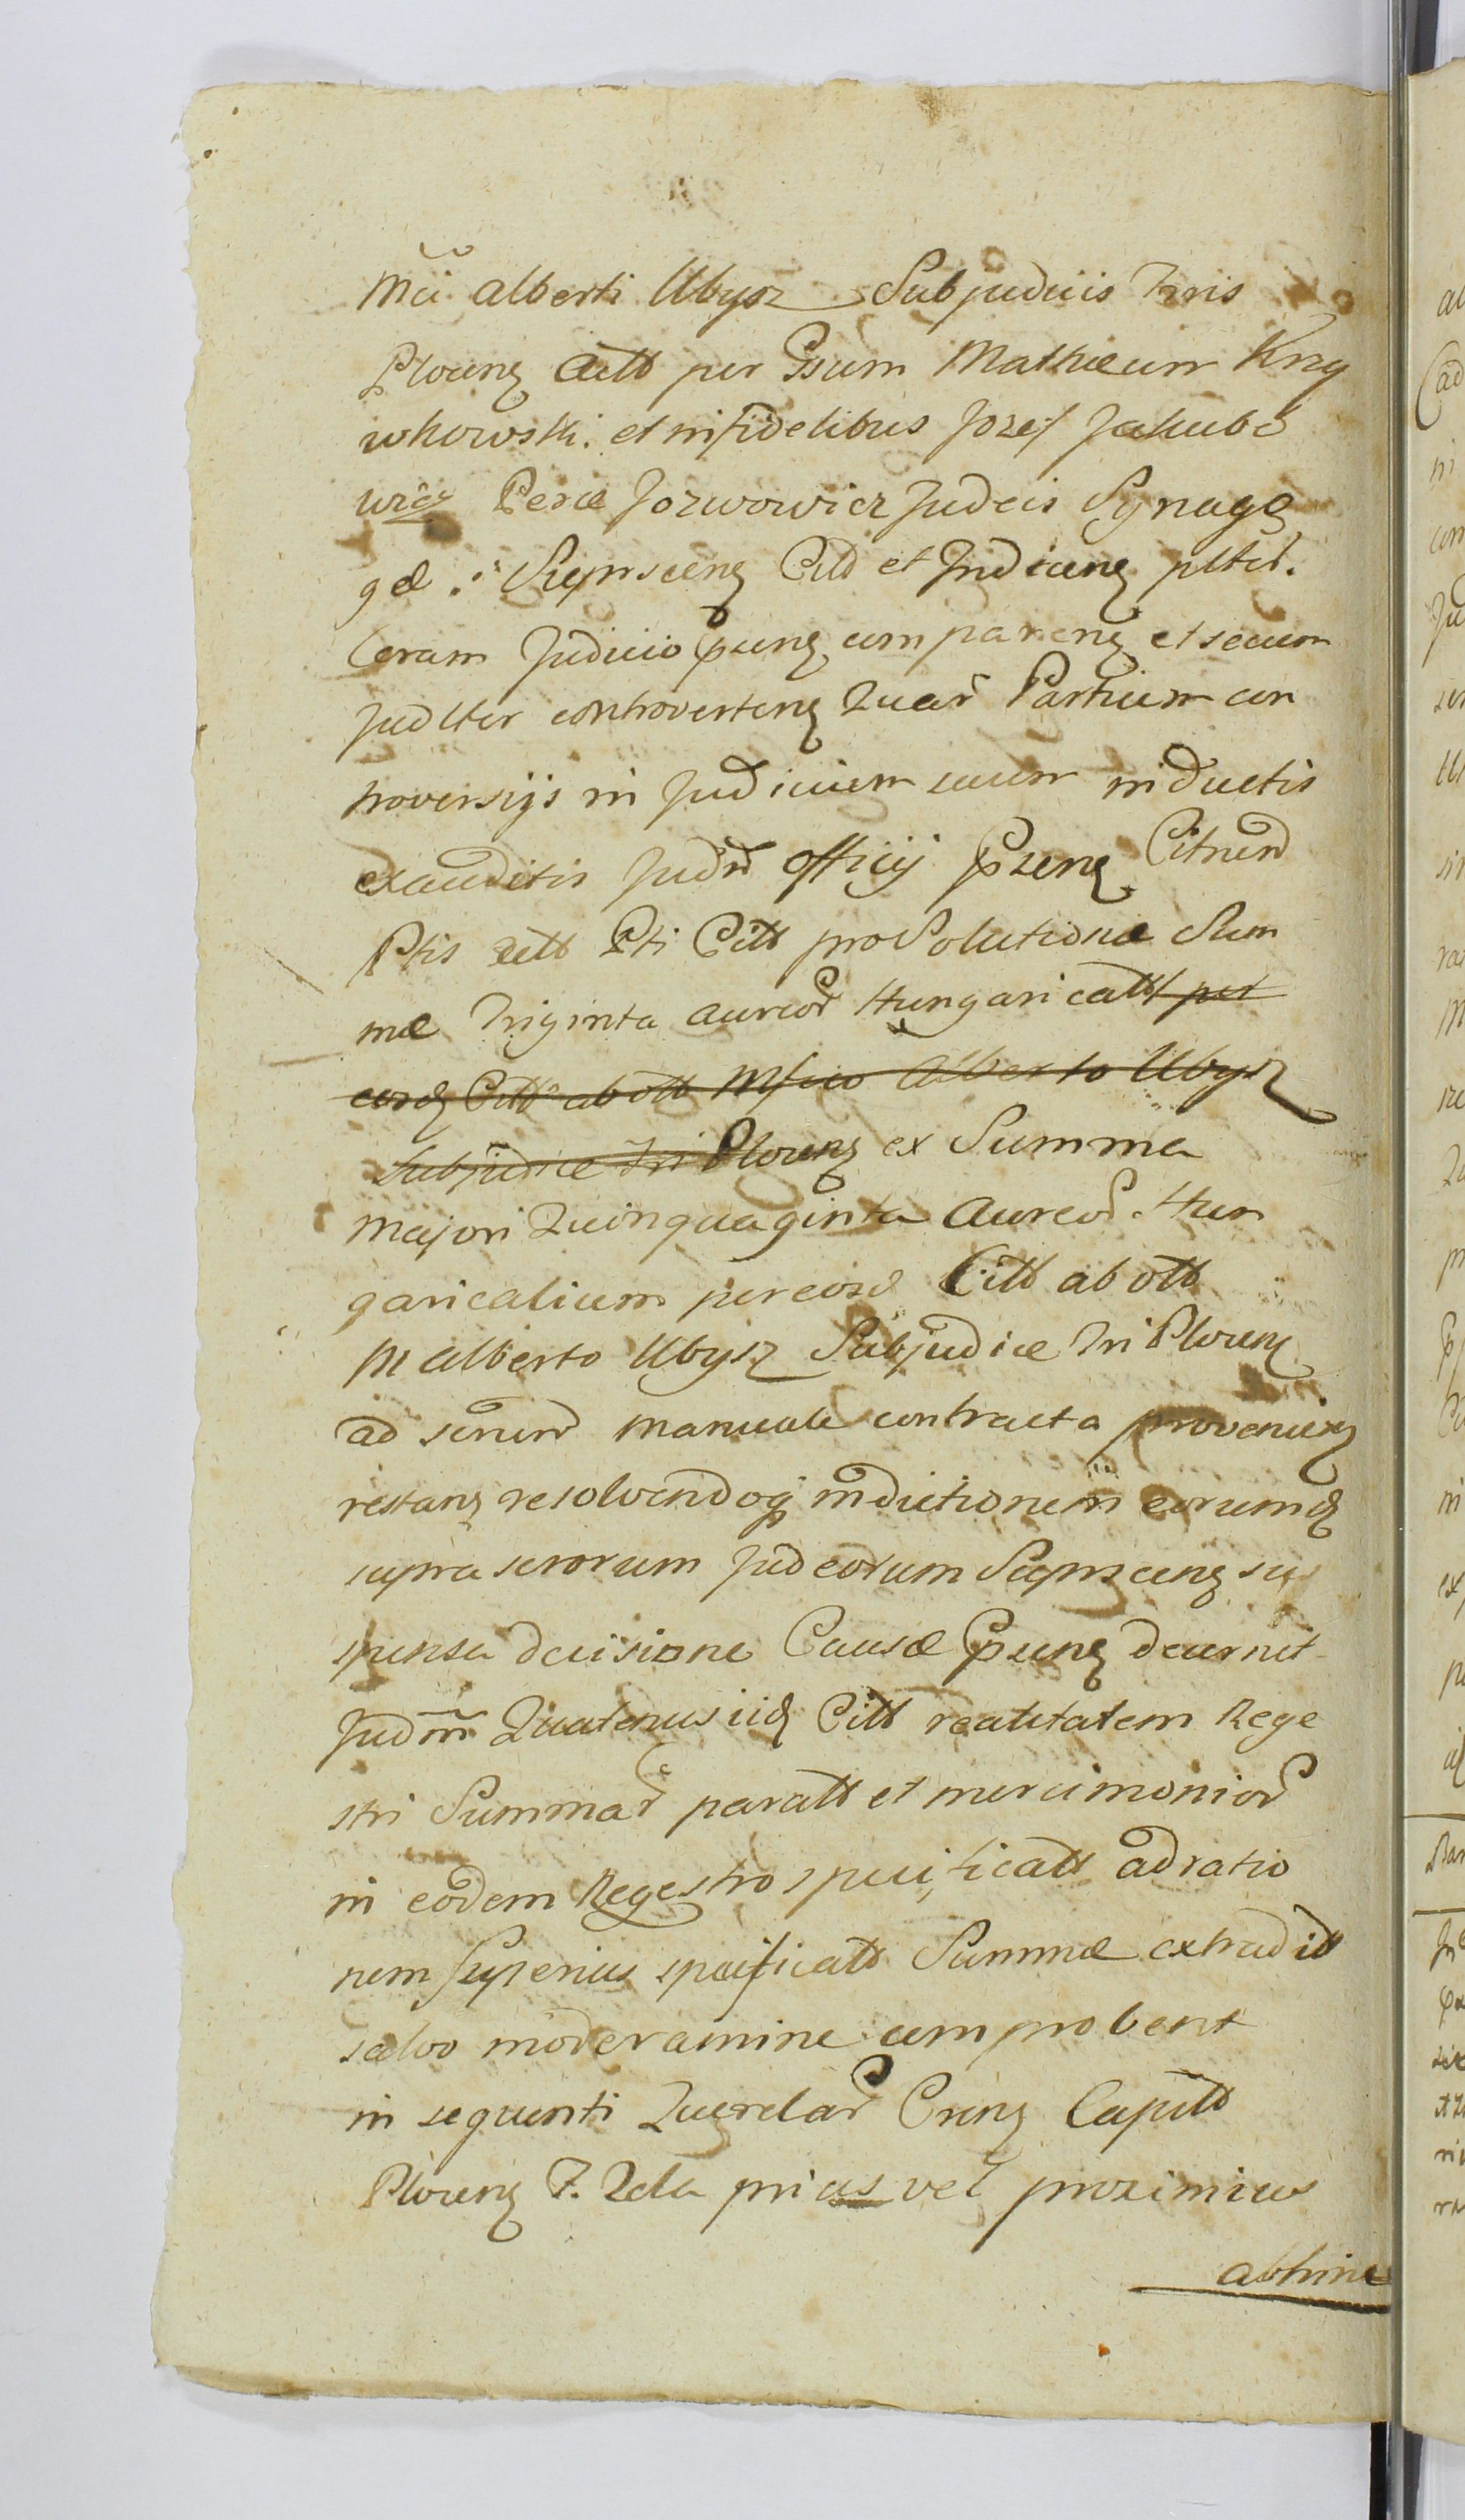 Mci Alberti Ubysz Subjudicis Tris
Plocens Actt per Gsum Mathaeum Krzy
wkowski. et infidelibus Jozef Jakubo
wicz Perae Jozwowicz Judeis Synago
gae. Sieprscens Citt et Judicens pltit.
Coram Judicio psens comparens et secum
Judlter controvertens Quar Partium con
troversijs in Judicium suum inductis
exauditis Judm Officij Psens Citnem
Ptis Actt Pti Citt pro Solutione Sum
mae Triginta Aureor Hungaricatt per
eosd Citt ab ott Mfico Alberto Ubysz
Subjudice Tri Plocens ex Summa
Majori Quinquaginta Aureor Hun
garicalium per eosd Citt ab ott
M Alberto Ubysz Subjudice Tri Plocens
ad manuale contracta proveniens
restans resolvendoq indictionem eorumd
supra scrorum Judeorum Sieprscens sus
pensa decisione Causae Psens decernit
Judm Quatenus iid Citt realitatem Rege
stri Summar paratt et mercimonior
in eodem Regestro specificatt ad ratio
nem superius specificatt Summae extradditt
salvo moderamine comprobent
in sequenti Querelar Crens Capitt
Plocens F. 2da prius vel proximius
abhinc